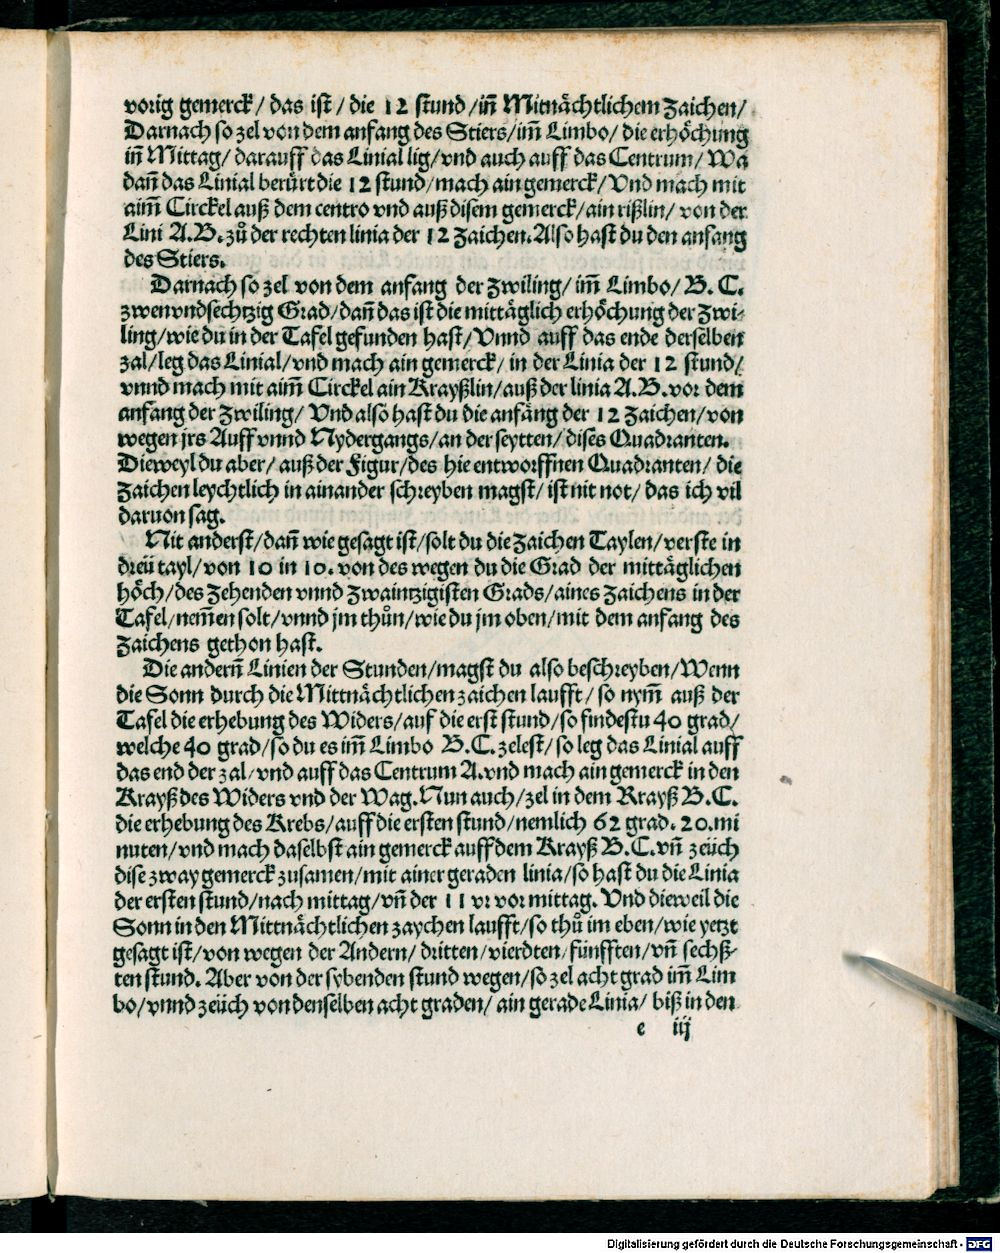 vorig gemerck/ das ist/ die 12 stund/in̄ Mitnächtlichem Zaichen/
Darnach so zel von dem anfang des Stiers/im̄ Limbo/ die erhöchung
in̄ Mittag/ darauff das Linial lig/vnd auch auff das Centrum/ Wa
dan̄ das Linial berürt die 12 stund/mach ain gemerck/ Vnd mach mit
aim̄ Circkel auß dem centro vnd auß disem gemerck/ain rißlin/ von der
Lini A.B. zů der rechten linia der 12 Zaichen. Also hast du den anfang
des Stiers.
Darnach so zel von dem anfang der Zwiling/ im̄ Limbo/ B. C.
zwenvndsechtzig Grad/dan̄ das ist die mittäglich erhöchung der Zwi-
ling/wie du in der Tafel gefunden hast/ Vnnd auff das ende derselben
zal/leg das Linial/vnd mach ain gemerck/ in der Linia der 12 stund/
vnnd mach mit aim̄ Circkel ain Krayßlin/auß der linia A.B. vor dem
anfang der Zwiling/ Vnd also hast du die anfäng der 12 Zaichen/von
wegen jrs Auff vnnd Nydergangs/an der seytten/ dises Quadranten.
Dieweyl du aber/ auß der Figur/des hie entworffnen Quadranten/ die
Zaichen leychtlich in ainander schreyben magst/ ist nit not/ das ich vil
daruon sag.
Nit anderst/dan̄ wie gesagt ist/solt du die Zaichen Taylen/verste in
dreü tayl/von 10 in 10. von des wegen du die Grad der mittäglichen
höch/des Zehenden vnnd Zwaintzigisten Grads/aines Zaichens in der
Tafel/nem̄en solt/vnnd jm thůn/wie du jm oben/mit dem anfang des
Zaichens gethon hast.
Die andern̄ Linien der Stunden/magst du also beschreyben/Wenn
die Sonn durch die Mittnächtlichen zaichen laufft/ so nym̄ auß der
Tafel die erhebung des Widers/auf die erst stund/so findestu 40 grad/
welche 40 grad/so du es im̄ Limbo B.C. zelest/so leg das Linial auff
das end der zal/vnd auff das Centrum A. vnd mach ain gemerck in den
Krayß des Widers vnd der Wag. Nun auch/zel in dem Krayß B.C.
die erhebung des Krebs/auff die ersten stund/nemlich 62 grad. 20. mi
nuten/vnd mach daselbst ain gemerck auff dem Krayß B.C. vn̄ zeüch
dise zway gemerck zusamen/mit ainer geraden linia/so hast du die Linia
der ersten stund/nach mittag/vn̄ der 11 vr vor mittag. Vnd dieweil die
Sonn in den Mittnächtlichen zaychen laufft/so thů im eben/wie yetzt
gesagt ist/von wegen der Andern/ dritten/vierdten/fünfften/vn̄ sechß-
ten stund. Aber von der sybenden stund wegen/so zel acht grad im̄ Lim
bo/vnnd zeüch von denselben acht graden/ ain gerade Linia/ biß in den
e iij
Digitalisierung gefördert durch die Deutsche Forschungsgemeinschaft - DFG